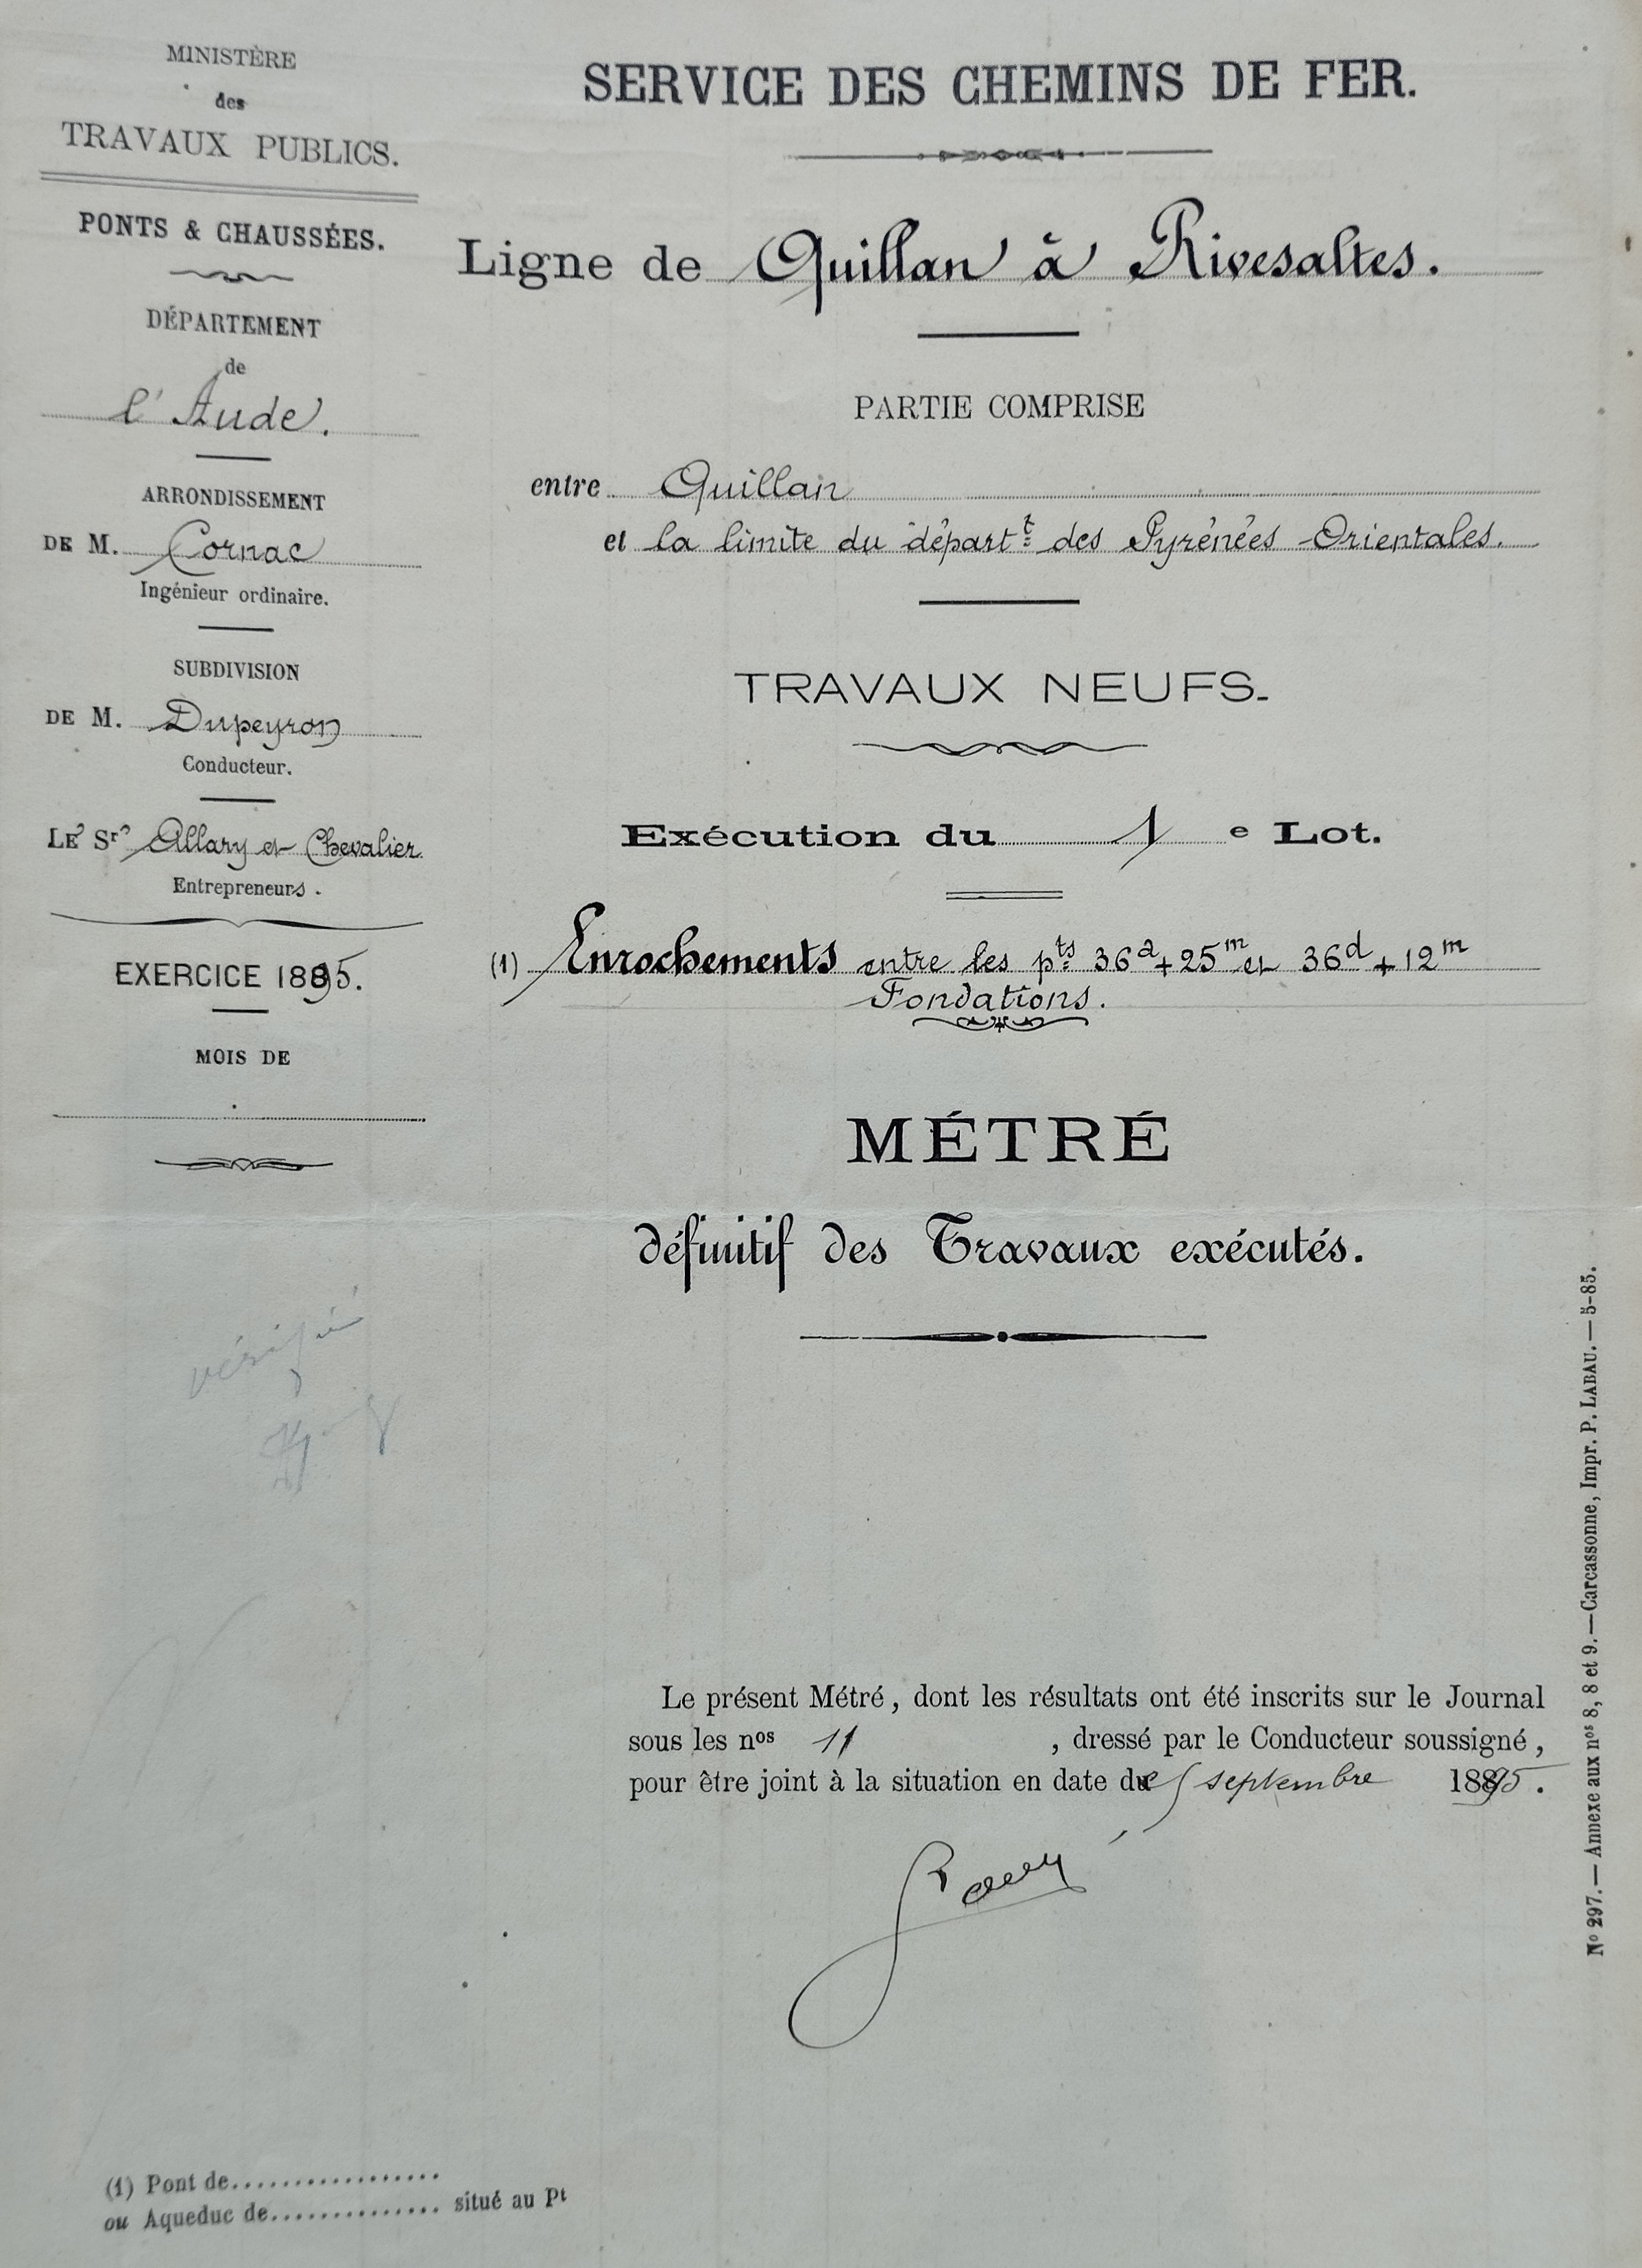 MINISTÈRE
des
TRAVAUX PUBLICS.
PONTS & CHAUSSÉES.
DÉPARTEMENT
de
l'Aude.
ARRONDISSEMENT
DE M. Cornac
Ingénieur ordinaire.
SUBDIVISION
DE M. Dupeyron
Conducteur.
LE Srs Allary et Chevalier
Entrepreneurs.
EXERCICE 1895.
MOIS DE
vérifié
SERVICE DES CHEMINS DE FER.
Ligne de Quillan à Rivesaltes.
PARTIE COMPRISE
entre Quillan
et la limite du départt des Pyrénées-Orientales.
TRAVAUX NEUFS.
Exécution du 1e Lot.
(1) Enrochements entre les pts 36d+25m et 36d+12m
Fondations.
MÉTRÉ
définitif des Travaux exécutés.
Le présent Métré, dont les résultats ont été inscrits sur le Journal
sous les nos 11 , dressé par le Conducteur soussigné,
pour être joint à la situation en date de septembre 1895.
(1) Pont de..................
ou Aqueduc de.............. situé au Pt
No 297. — Annexe aux nos 8, 8 et 9. — Carcassonne, Impr. P. LABAU. — 5-85.